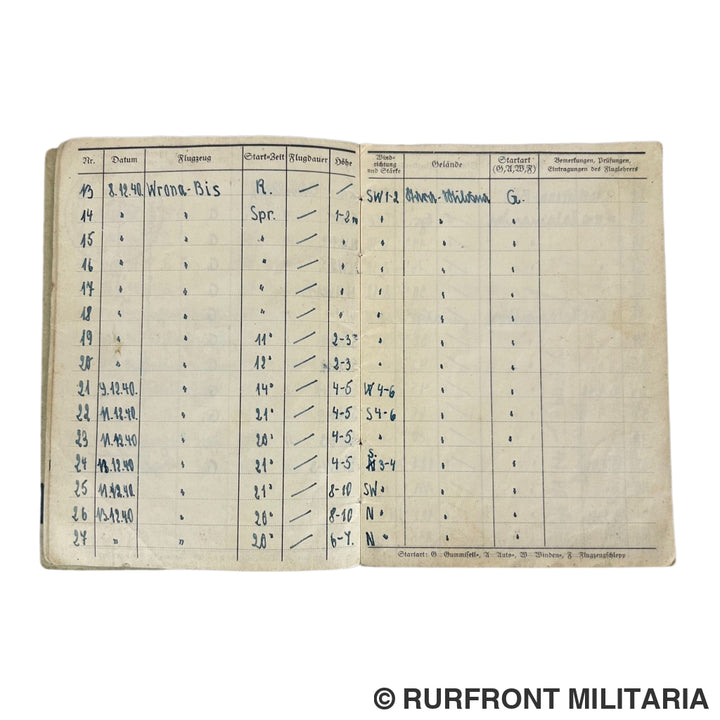 Nr. Datum Flugzeug Start=Zeit Flugdauer Höhe Wind- richtung und Stärke Gelände Startart (G, A, W, F) Bemerkungen, Prüfungen, Eintragungen des Fluglehrers
13 8.12.40. Wrona-Bis R. / / SW 1-2 G.
14 " " Spr. / 1-2m " " "
15 " " " / " " " "
16 " " " / " " " "
17 " " " / " " " "
18 " " " / " " " "
19 " " 11" / 2-3" " " "
20 " " 12" / 2-3 " " "
21 9.12.40. " 14" / 4-5 W 4-6 " "
22 11.12.40. " 21" / 4-5 S 4-6 " "
23 11.12.40 " 20" / 4-5 " " "
24 12.40 " 21" / 4-5 S. 3-4 " "
25 11.12.40 " 21" / 8-10 SW " " "
26 13.12.40 " 20" / 8-10 N " " "
27 " " 20" / 6-7. N " " "
Startart: G = Gummiseil=, A = Auto=, W = Winden=, F = Flugzeugschlepp
© RURFRONT MILITARIA